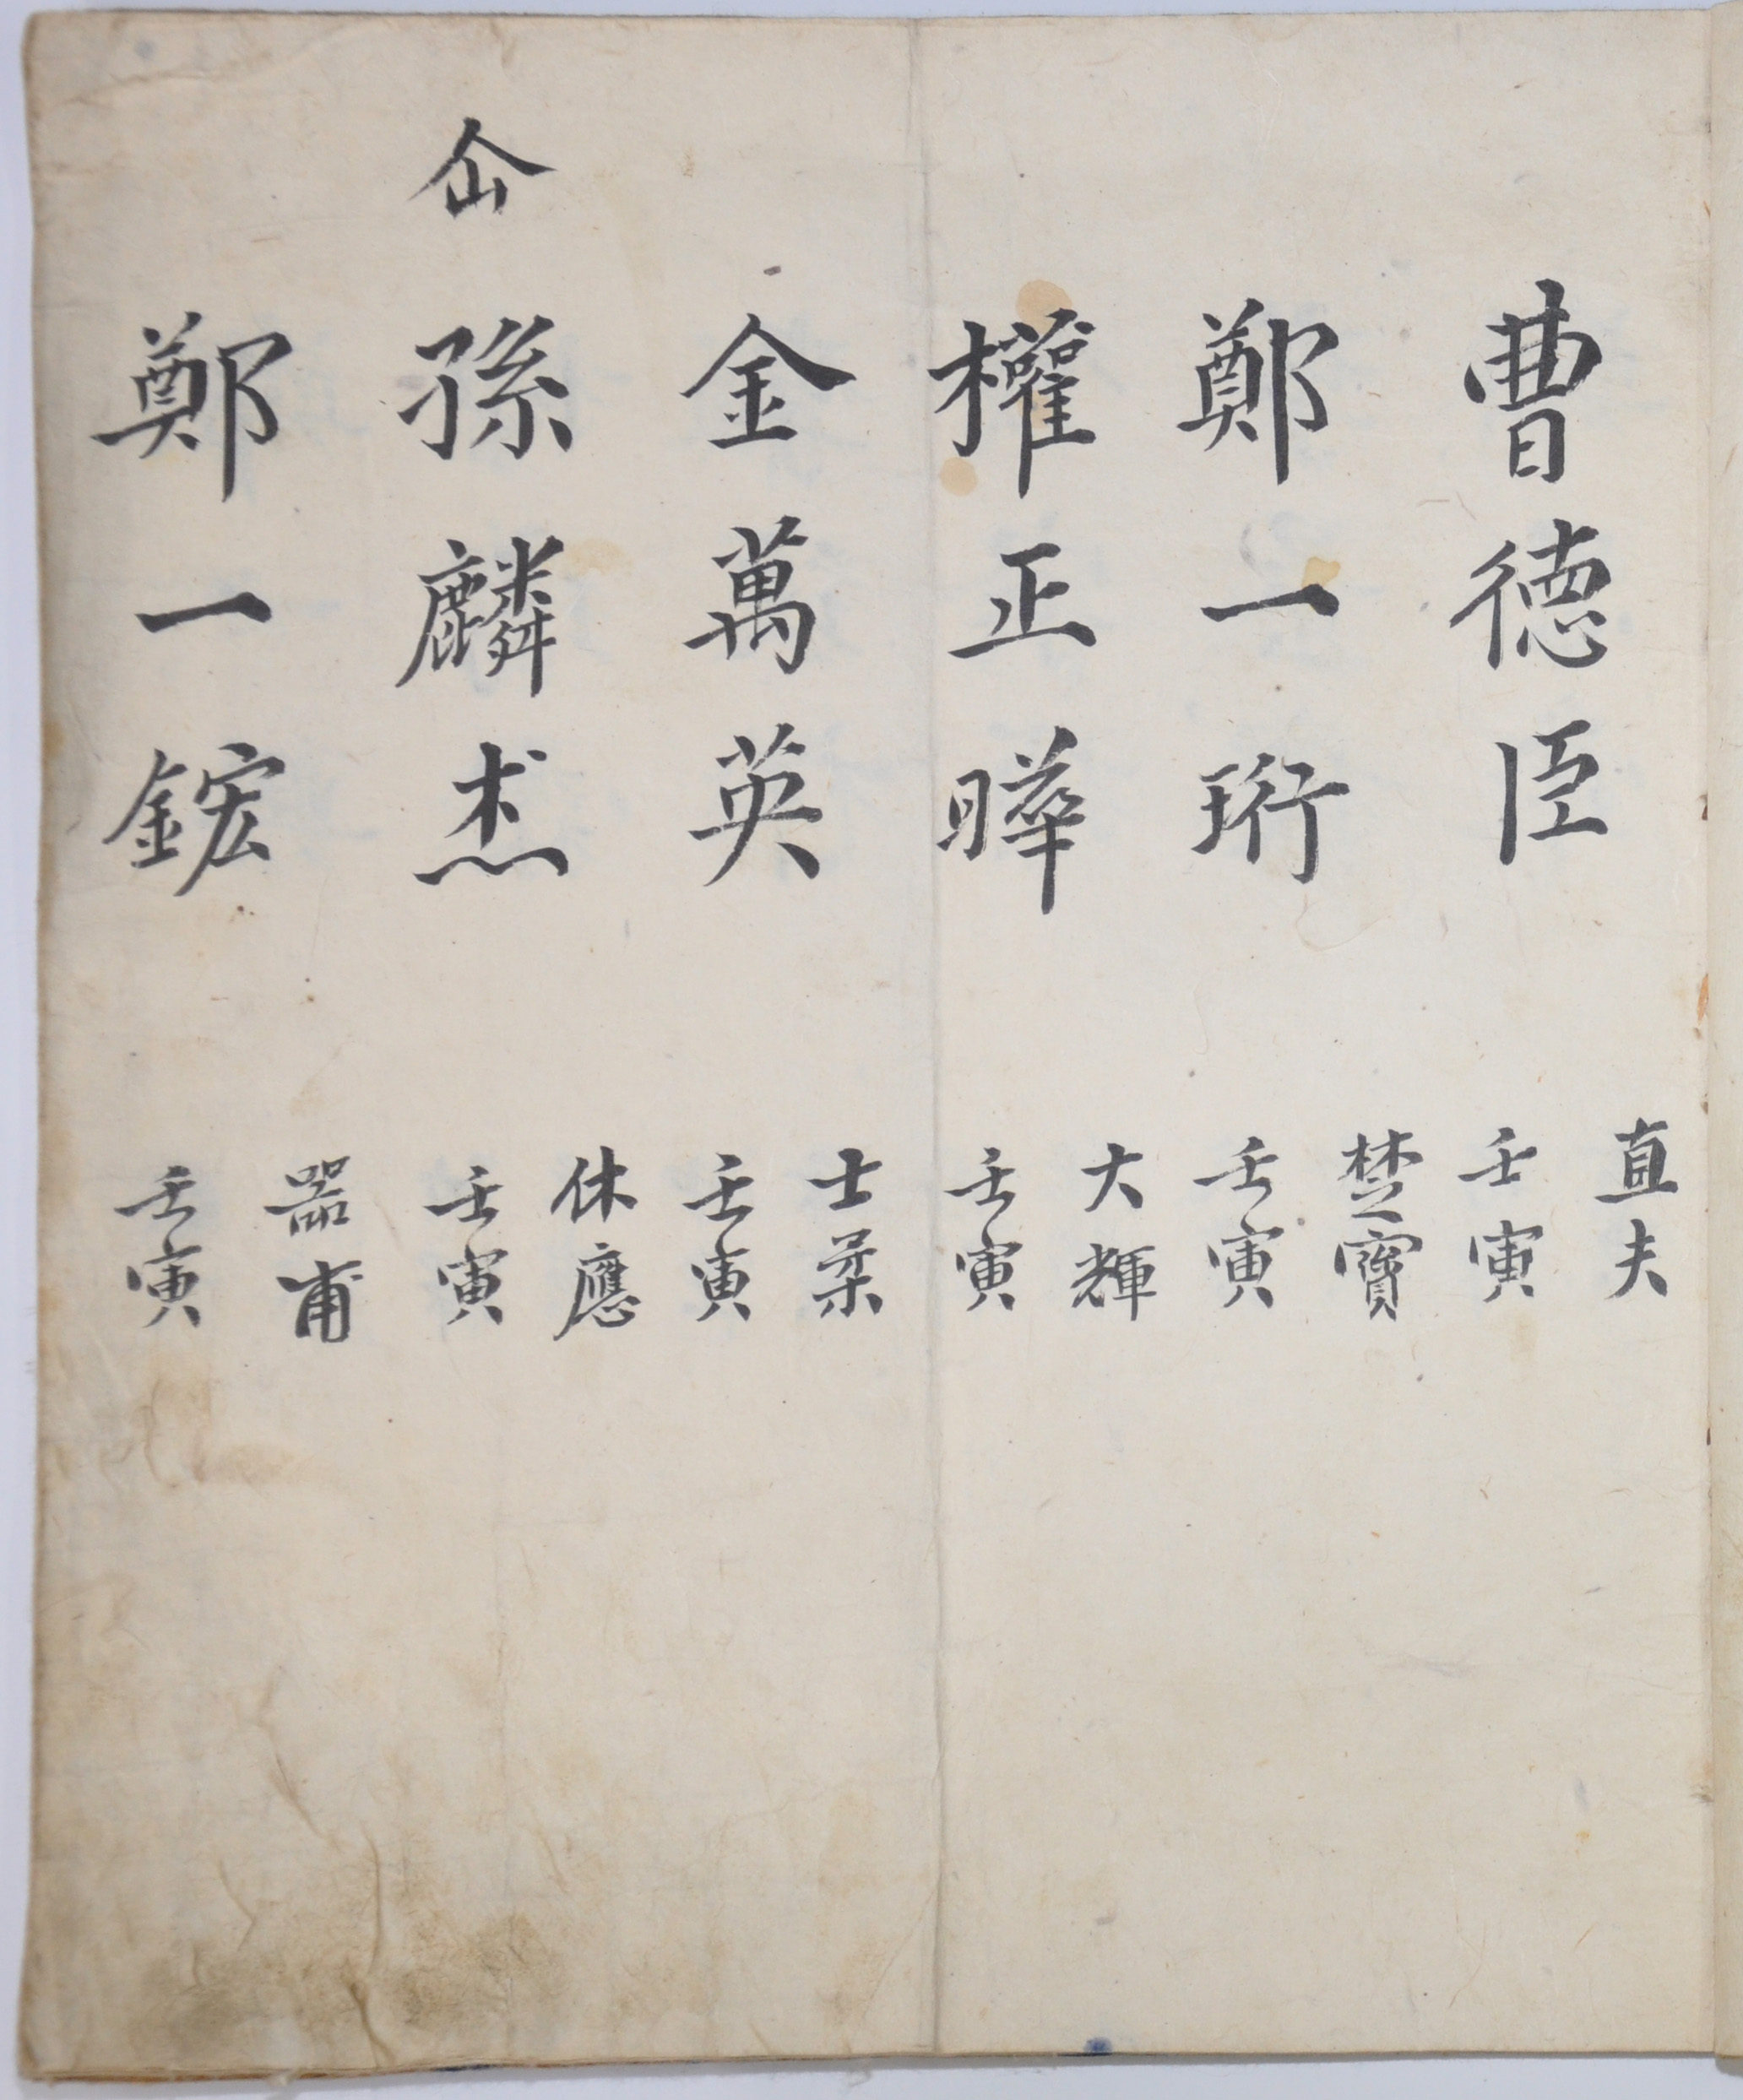 曹徳臣
直夫
壬寅
鄭一珩
楚寶
壬寅
權正曄
大輝
壬寅
金萬英
士柔
壬寅
仚
孫麟杰
休應
壬寅
鄭一鋐
器甫
壬寅